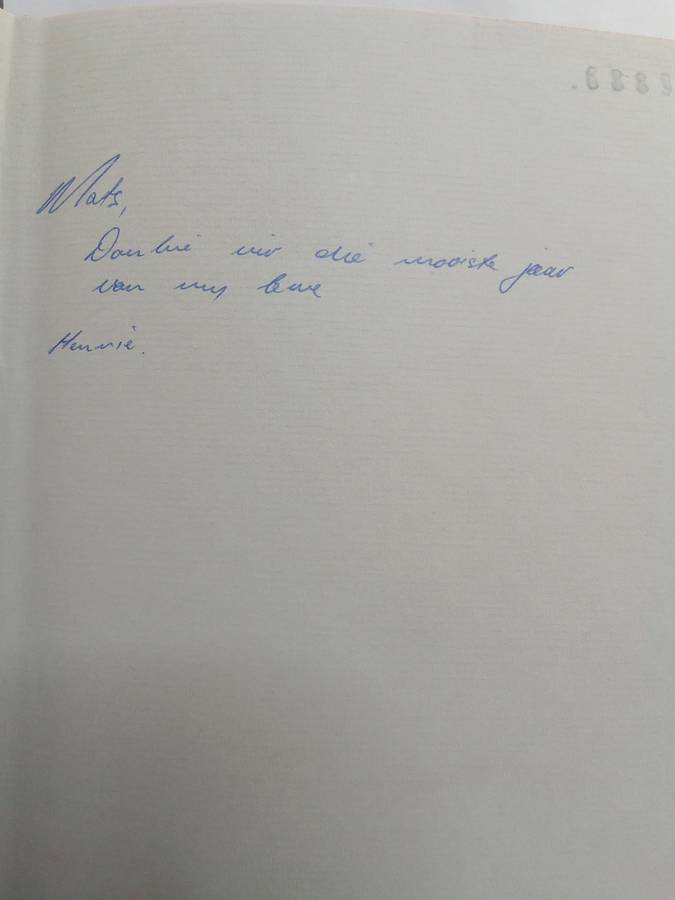 Mats,
Dankie vir die mooiste jaar
van my lewe
Hennie.